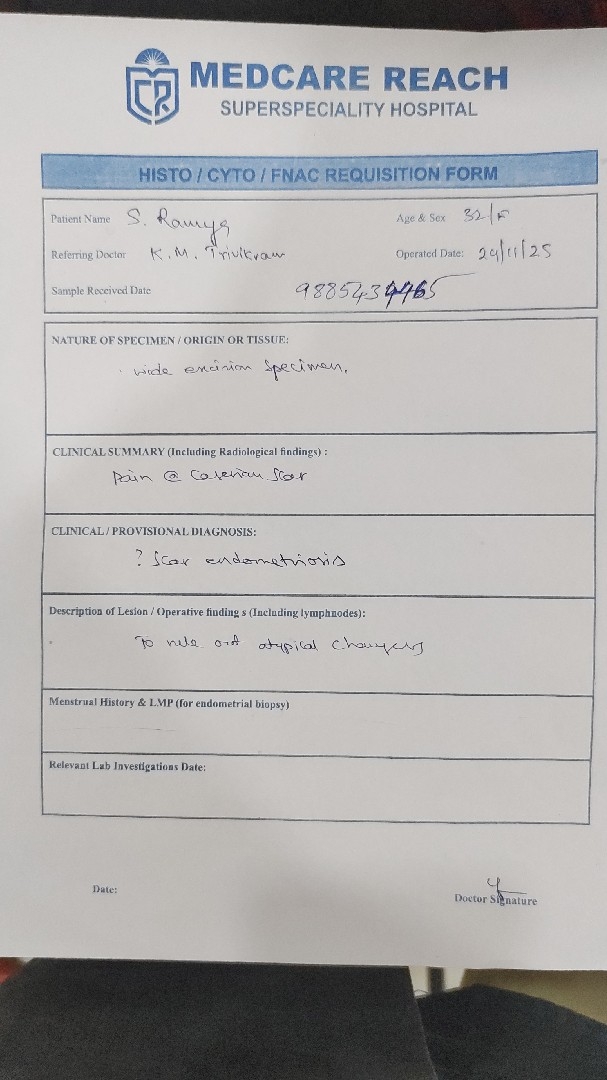 MEDCARE REACH
SUPERSPECIALITY HOSPITAL
HISTO / CYTO / FNAC REQUISITION FORM
Patient Name S. Ramya Age & Sex 32/F
Referring Doctor K.M. Trivikram Operated Date: 29/11/25
Sample Received Date
NATURE OF SPECIMEN / ORIGIN OR TISSUE:
wide excision specimen.
CLINICAL SUMMARY (Including Radiological findings) :
Pain @ Caserian Scar
CLINICAL / PROVISIONAL DIAGNOSIS:
? Scar endometriosis
Description of Lesion / Operative finding s (Including lymphnodes):
To rule out atypical changes
Menstrual History & LMP (for endometrial biopsy)
Relevant Lab Investigations Date:
Date:
Doctor Signature